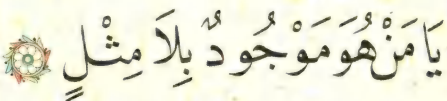 يَا مَنْ هُوَ مَوْجُودٌ بِلَا مِثْلٍ